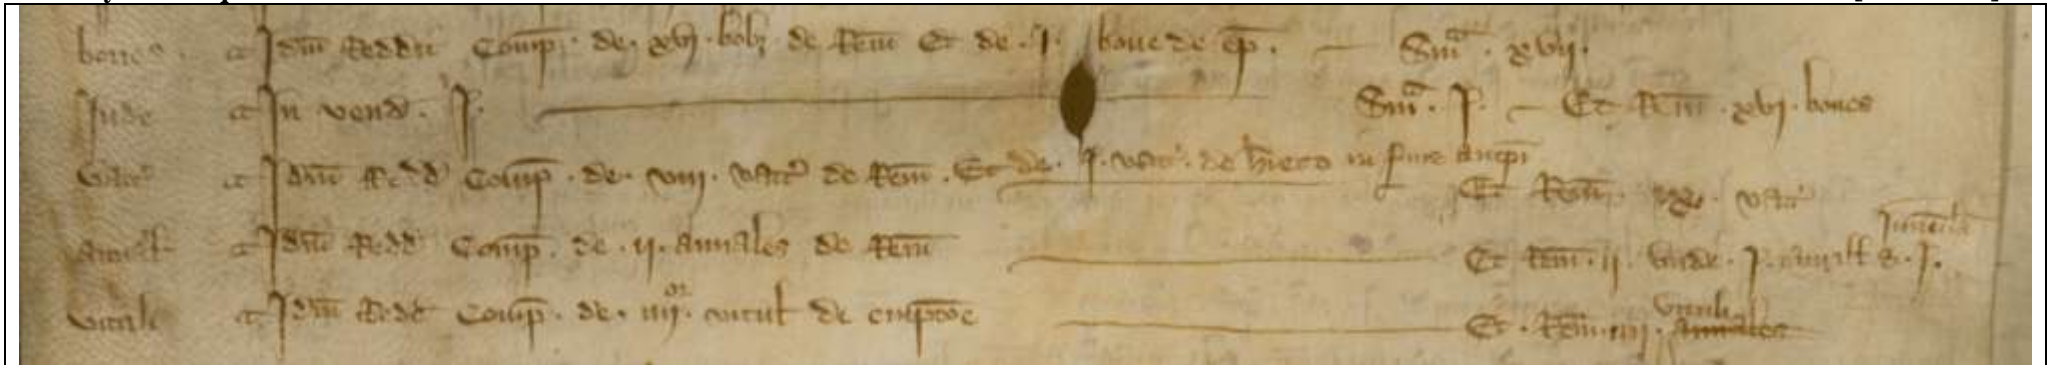 boues · Idm Reddit Comp · de · xvj · bobȝ de Rem Et de · j · boue de ep̄ · Sma · xvij ·
Inde In vend · j · Sma · j · Et Rem · xvj · boues
Vacce Idm Redd Comp · de · viij · vacc de Rem · Et de · j · vacc · de h'ieto in fine anni Et Rem · vacc
Annal Idm Redd Comp · de · ij · annales de Rem Et Rem · ij · vnde · j · annal & · j · Juuencla
vituli Idm Redd Comp · de · iiijor · vitul de empcōe Et · Rem · iiij · vituli annales